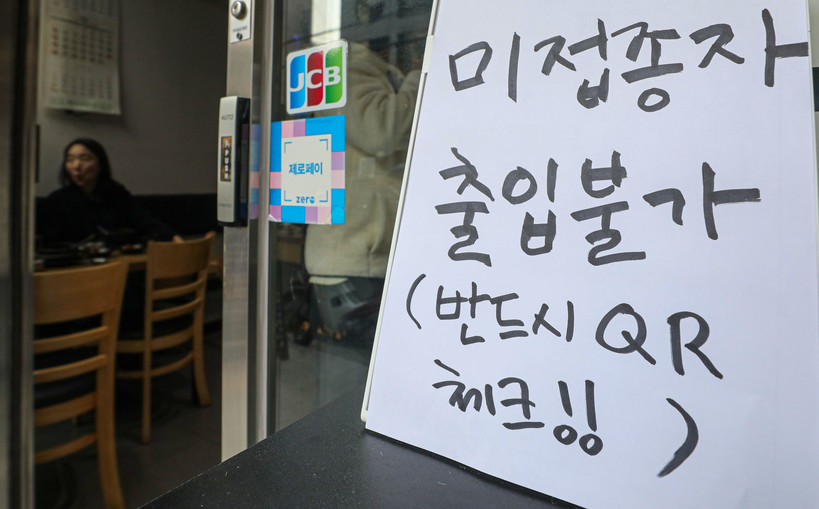 미접종자
출입불가
(반드시 QR
체크!!)
JCB
제로페이
zero
AUTO
PUSH